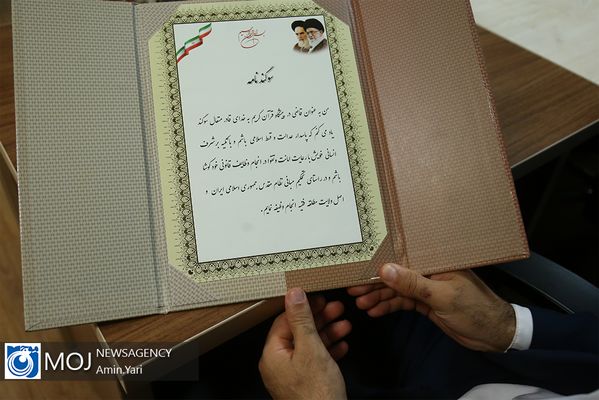 سوگند نامه
من به عنوان قاضی در پیشگاه قرآن کریم به خدای قادر متعال سوگند
یاد می کنم که پاسدار عدالت و قسط اسلامی باشم و با تکیه بر شرف
انسانی خویش با رعایت امانت و تقوا در انجام وظایف قانونی خود کوشا
باشم و در راستای تحکیم مبانی نظام مقدس جمهوری اسلامی ایران و
اصل ولایت مطلقه فقیه انجام وظیفه نمایم.
MOJ NEWSAGENCY
Amin.Yari